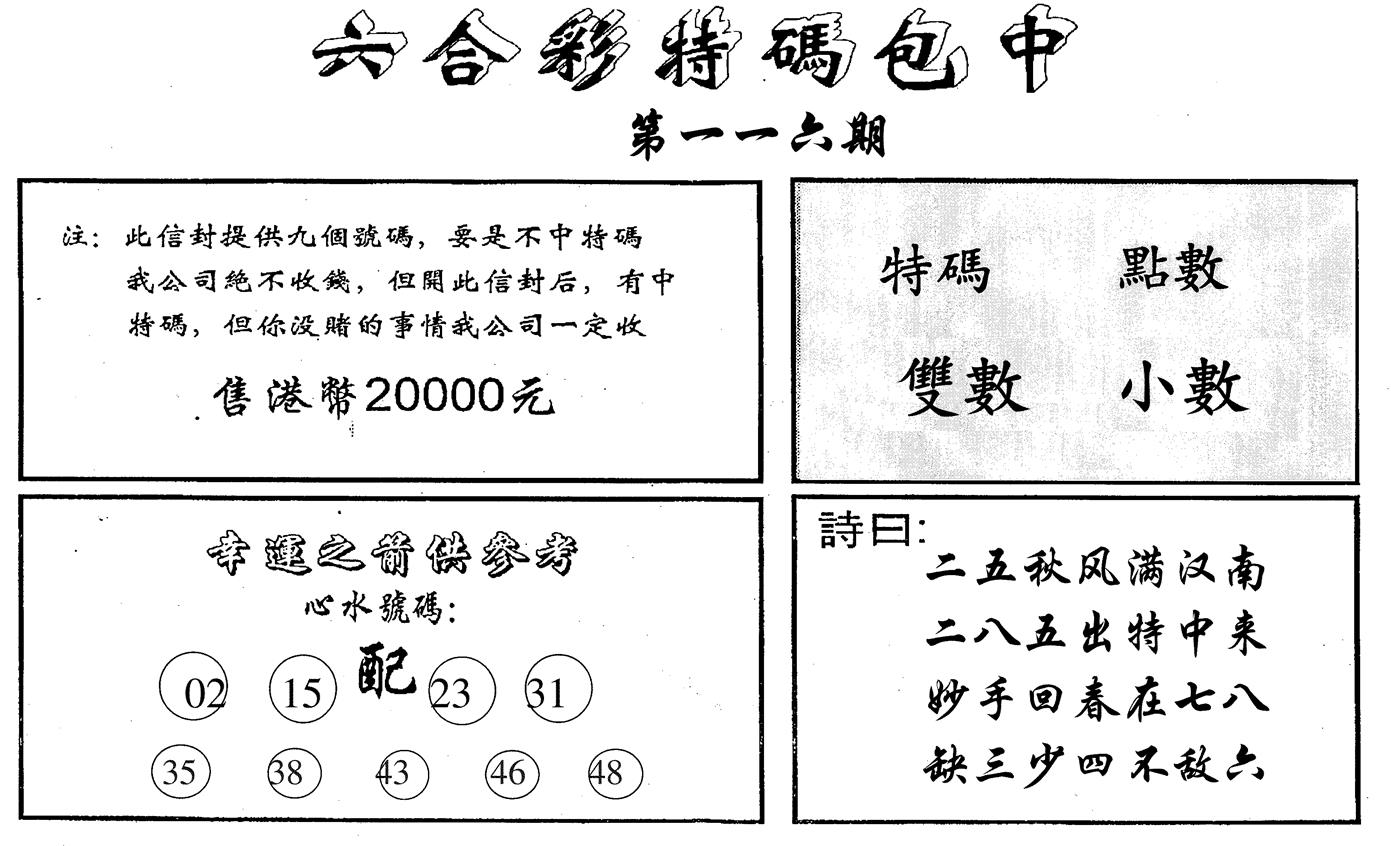 六合彩特碼包中
第一一六期
注：此信封提供九個號碼，要是不中特碼
我公司絶不收錢，但開此信封后，有中
特碼，但你没賭的事情我公司一定收
售港幣20000元
特碼 點數
雙數 小數
幸運之箭供參考
心水號碼：
02 15 配 23 31
35 38 43 46 48
詩曰：
二五秋风满汉南
二八五出特中来
妙手回春在七八
缺三少四不敌六